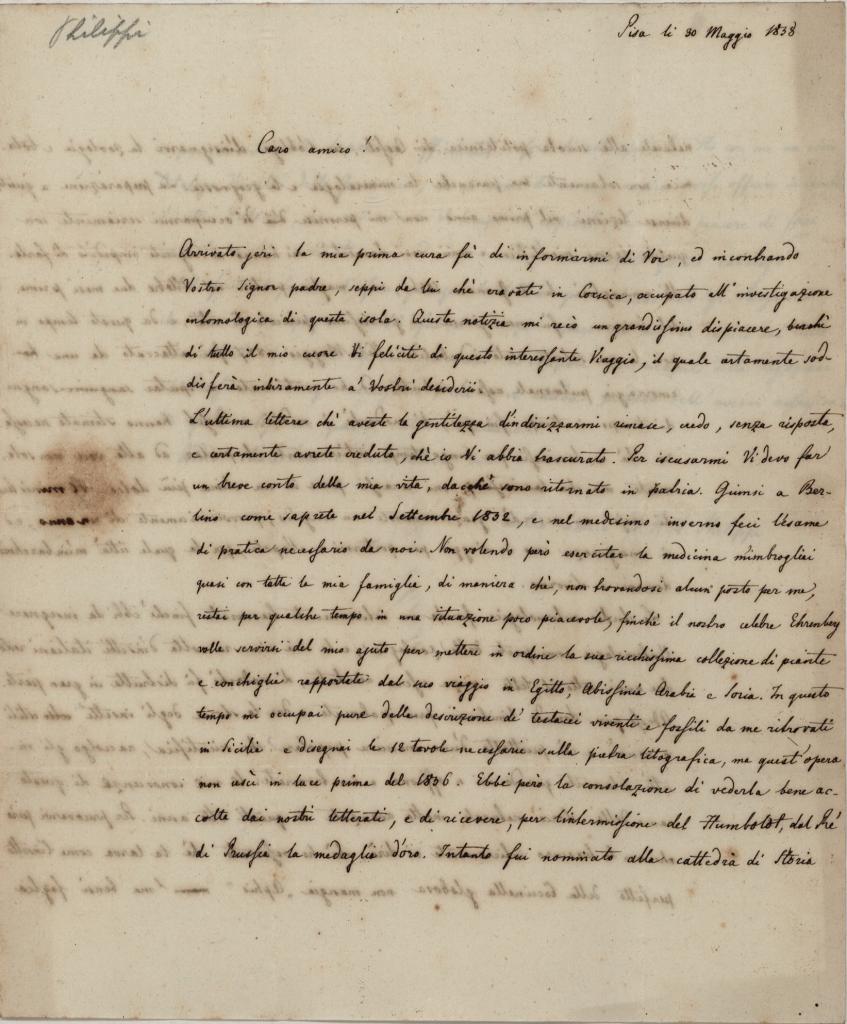 Philippi
Pisa li 30 Maggio 1838
Caro amico!
Arrivato jeri la mia prima cura fù di informarmi di Voi, ed incontrando
Vostro Signor padre, seppi da lui chè eravate in Corsica, occupato all'investigazione
entomologica di questa isola. Questa notizia mi recò un grandissimo dispiacere, benchè
di tutto il mio cuore Vi feliciti di questo interessante Viaggio, il quale certamente sod-
disferà intieramente a' Vostri desiderii.
L'ultima lettera chè aveste la gentilezza d'indirizzarmi rimase, credo, senza risposta,
e certamente avrete creduto, chè io Vi abbia trascurato. Per iscusarmi Vi devo far
un breve conto della mia vita, dacchè sono ritornato in patria. Giunsi a Ber-
lino come saprete nel Settembre 1832, e nel medesimo inverno feci l'esame
di pratica necessario da noi. Non volendo però esercitar la medicina m'imbrogliai
quasi con tutta la mia famiglia, di maniera chè, non trovandosi alcun posto per me,
restai per qualche tempo in una situazione poco piacevole, finchè il nostro celebre Ehrenberg
volle servirsi del mio ajuto per mettere in ordine la sua ricchissima collezione di piante
e conchiglie rapportate dal suo viaggio in Egitto, Abissinia Arabia e Soria. In questo
tempo mi occupai pure della descrizione de' testacei viventi e fossili da me ritrovati
in Sicilia e disegnai le 12 tavole necessarie sulla pietra litografica, ma quest'opera
non uscì in luce prima del 1836. Ebbi però la consolazione di vederla bene ac-
colta dai nostri letterati, e di ricevere, per l'intermissione del Humboldt, dal Ré
di Prussia la medaglia d'oro. Intanto fui nominato alla cattedra di Storia